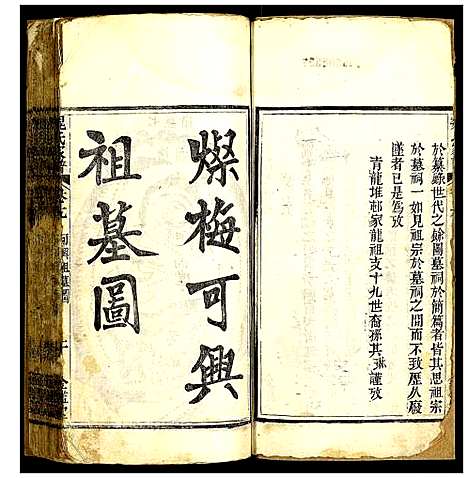 於纂錄世代之餘圖墓祠於簡篇者皆其思祖宗
於墓祠一如見祖宗於墓祠之間而不致歷久廢
墜者已是為攷
青龍堆郝家龍祖支十九世裔孫其謹攷
燦梅可興
祖墓圖